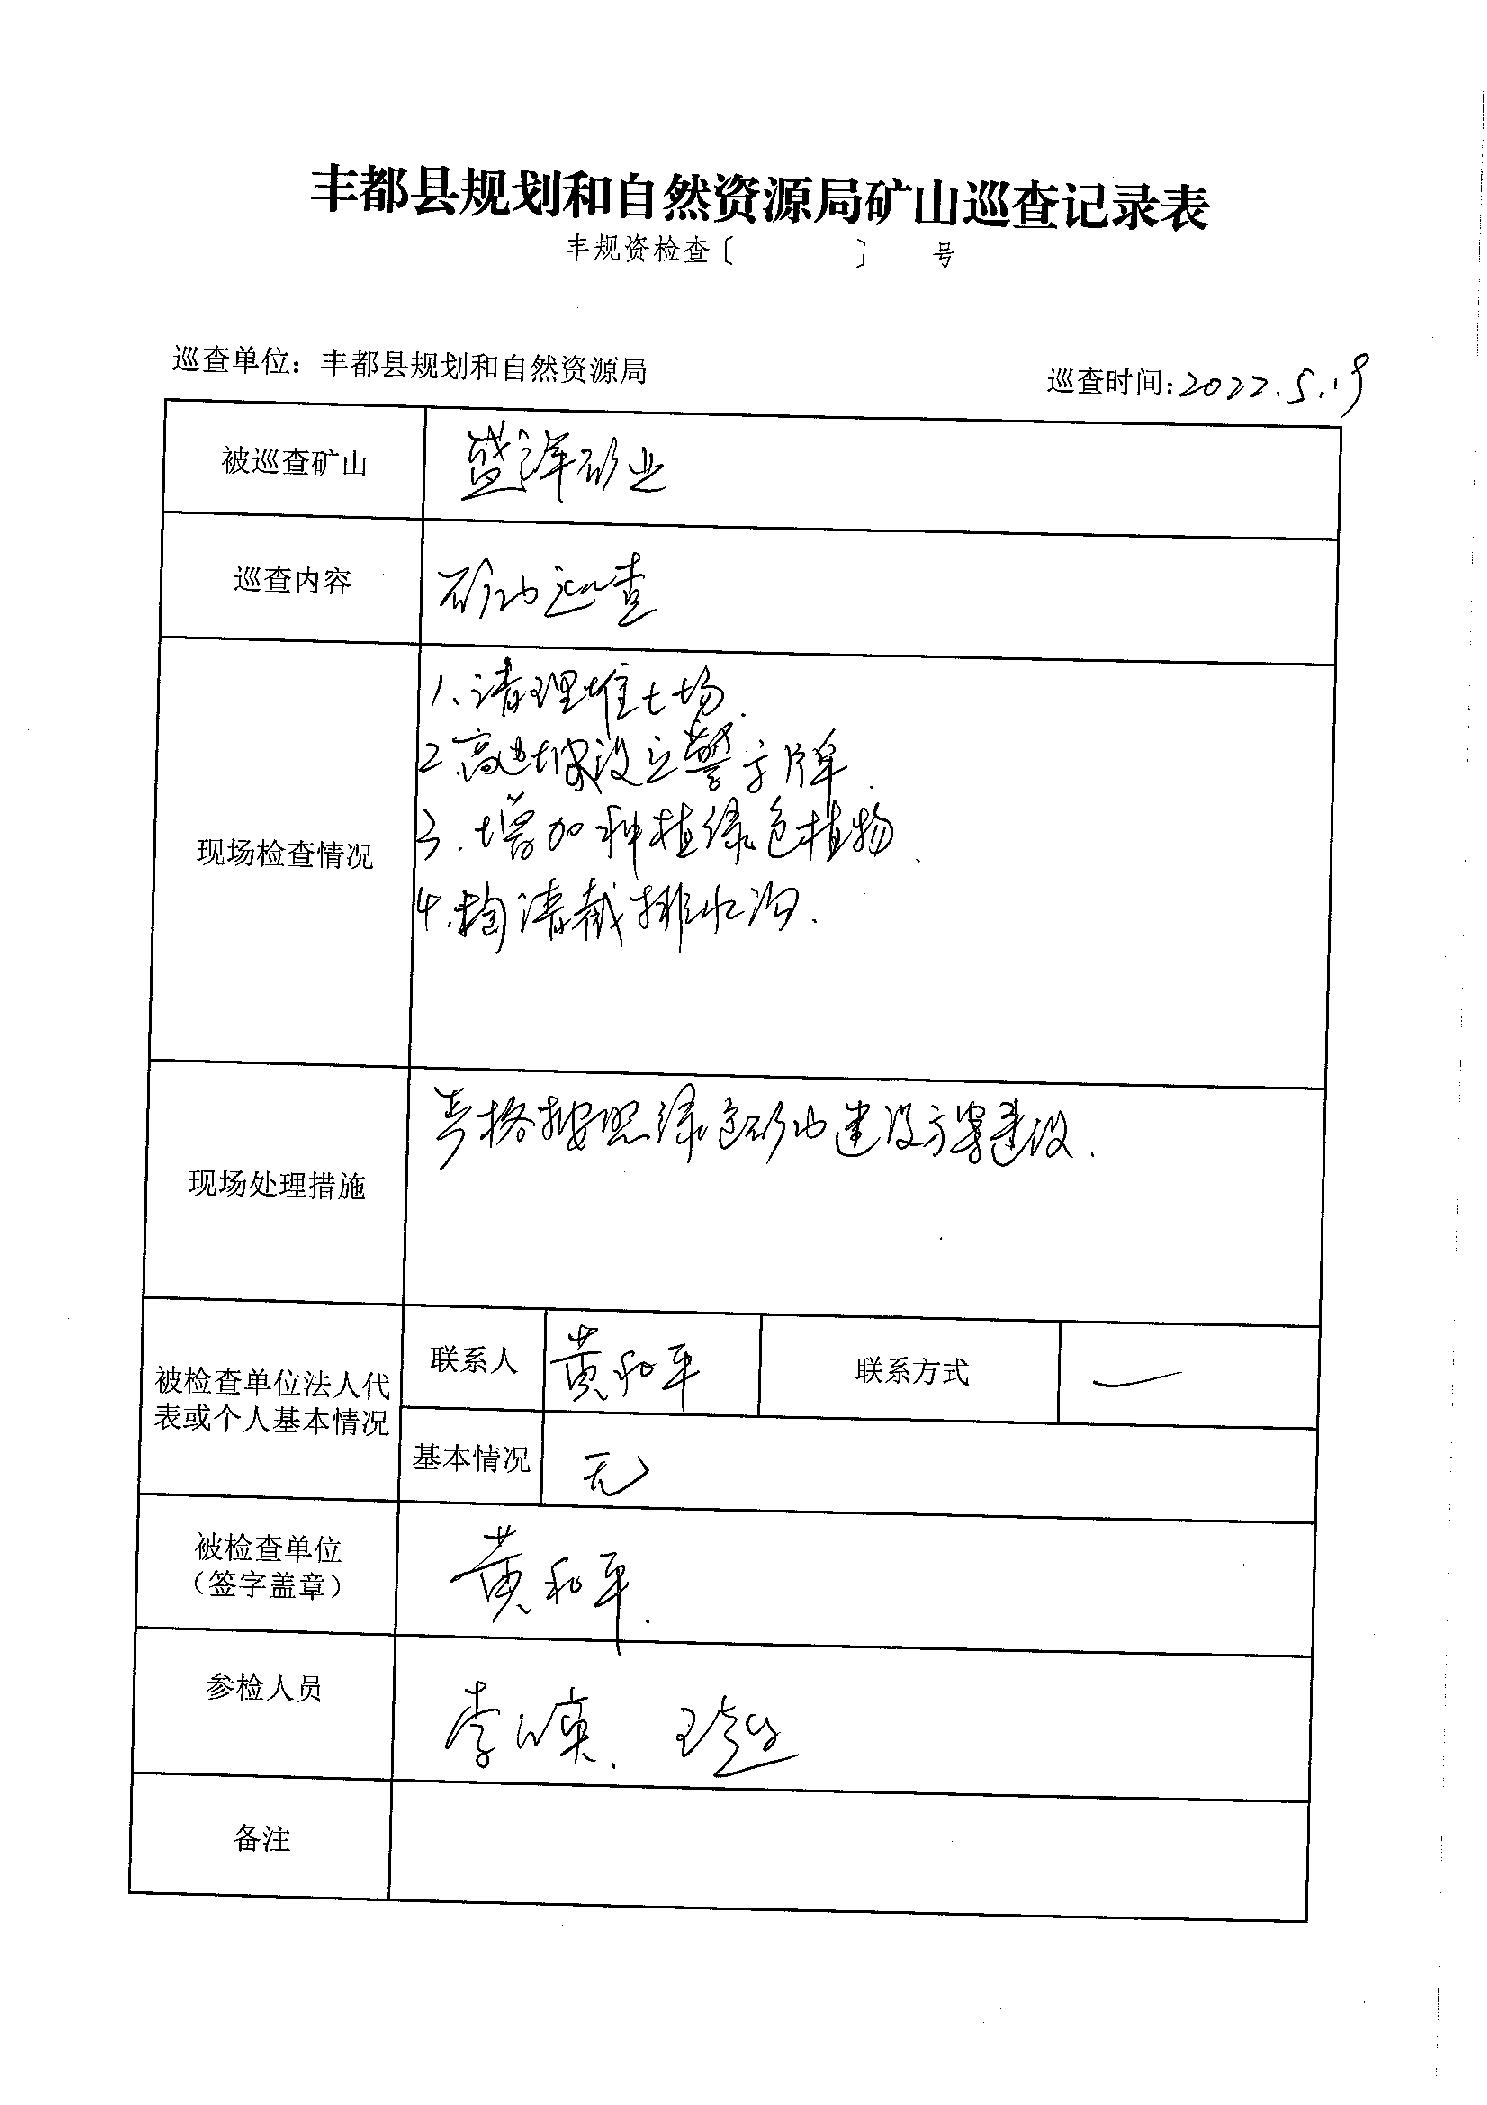 丰都县规划和自然资源局矿山巡查记录表
丰规资检查〔 〕 号
巡查单位：丰都县规划和自然资源局 巡查时间：2022.5.19
被巡查矿山 盛洋矿业
巡查内容 矿山巡查
现场检查情况
1、清理堆土场.
2 高边坡设立警示牌.
3.增加种植绿色植物.
4. 清截排水沟.
现场处理措施 严格按照绿色矿山建设方案建设.
被检查单位法人代
表或个人基本情况
联系人 黄和平 联系方式 —
基本情况 无
被检查单位
（签字盖章）
黄和平.
参检人员 李
备注